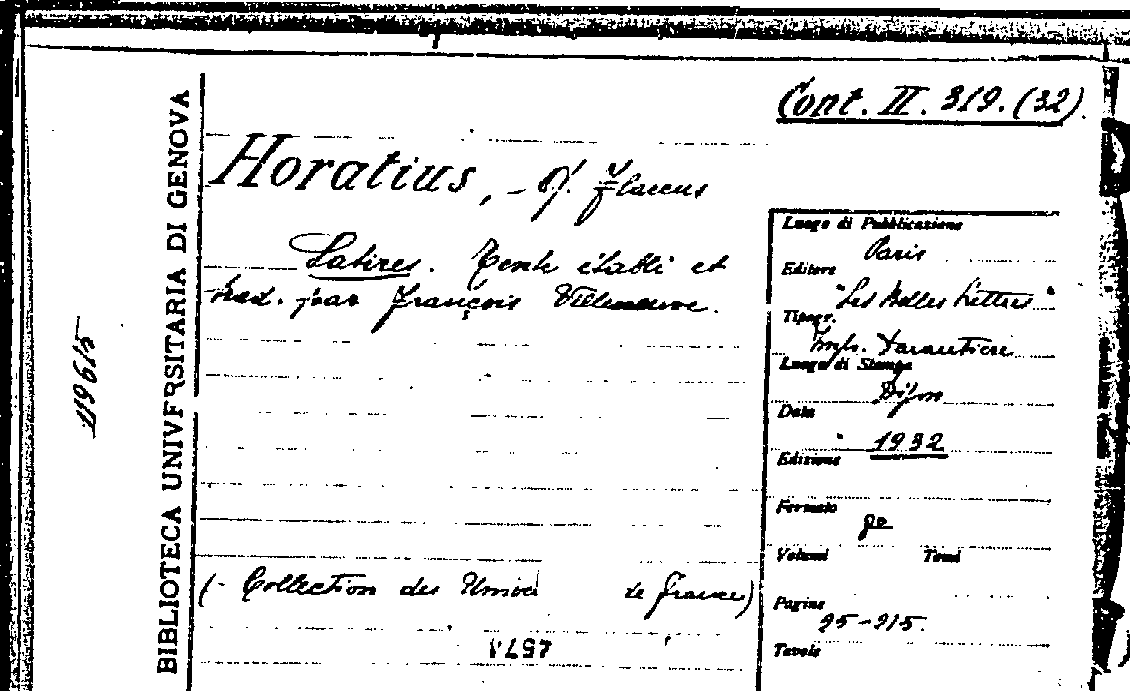 Cont. II. 319. (32).
Horatius, - Q. Flaccus
Satires. Texte établi et
trad. par François Villeneuve.
(- Collection des Univer de France)
BIBLIOTECA UNIVERSITARIA DI GENOVA
Luogo di Pubblicazione
Paris
Editore
"Les Belles Lettres"
Tipogr.
Impr. Darantiere
Luogo di Stampa
Dijon
Data
1932
Edizione
Formato
8º
Volumi Tomi
Pagine
-215.
Tavole